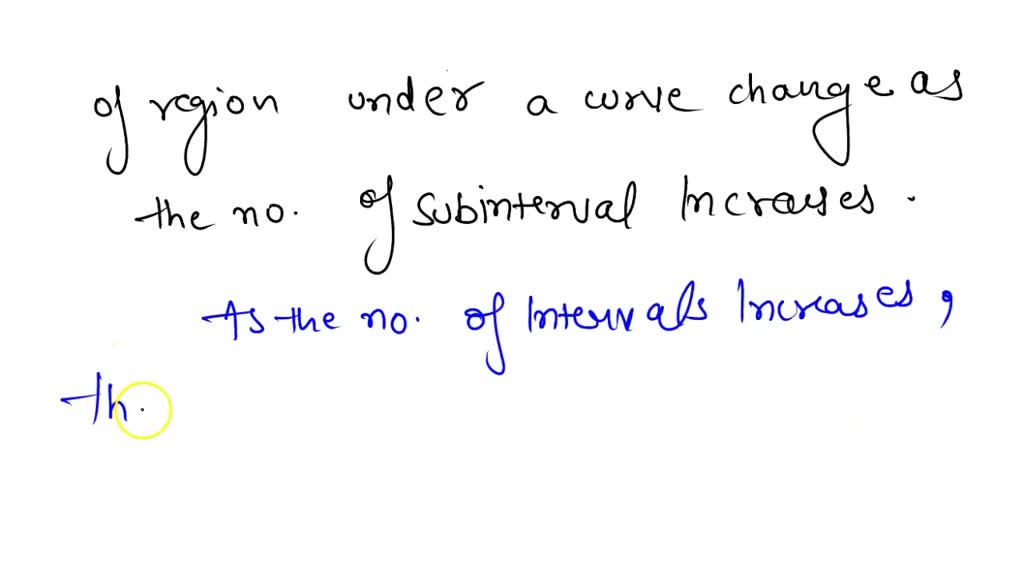 of region under a curve change as
the no. of subinterval Increases.
As the no. of Intervals Increases,
th